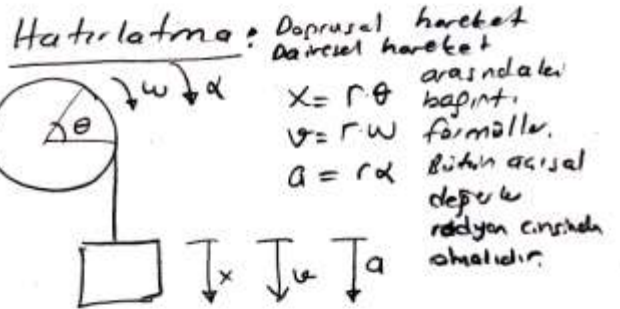 Hatırlatma: Doğrusal hareket
Dairesel hareket
arasındaki
bağıntı
formüller.
Bütün açısal
değerler
radyan cinsinden
olmalıdır.
ω α
θ
x = r·θ
v = r·ω
a = rα
x v a